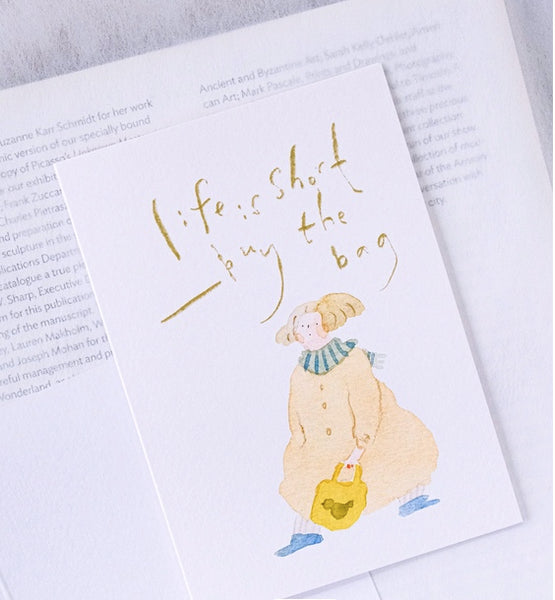 life is short
buy the
bag
uzanne Karr Schmidt for her work
nic version of our specially bound
opy of Picasso's
our exhibi
Frank Zuccar
Charles Pietras
nd preparation o
sculpture in the
lications Depar
catalogue a true ple
V. Sharp, Executive E
m for this publication
ng of the manuscript.
y, Lauren Makholm, W
and Joseph Mohan for t
reful management and p
Wonderland,
Ancient and Byzantine Art; Sarah Kelly Oehler, Ameri
can Art; Mark Pascale, Prints and Drawings;
Photography
precious
collection
of our show
of the
versation with
city.